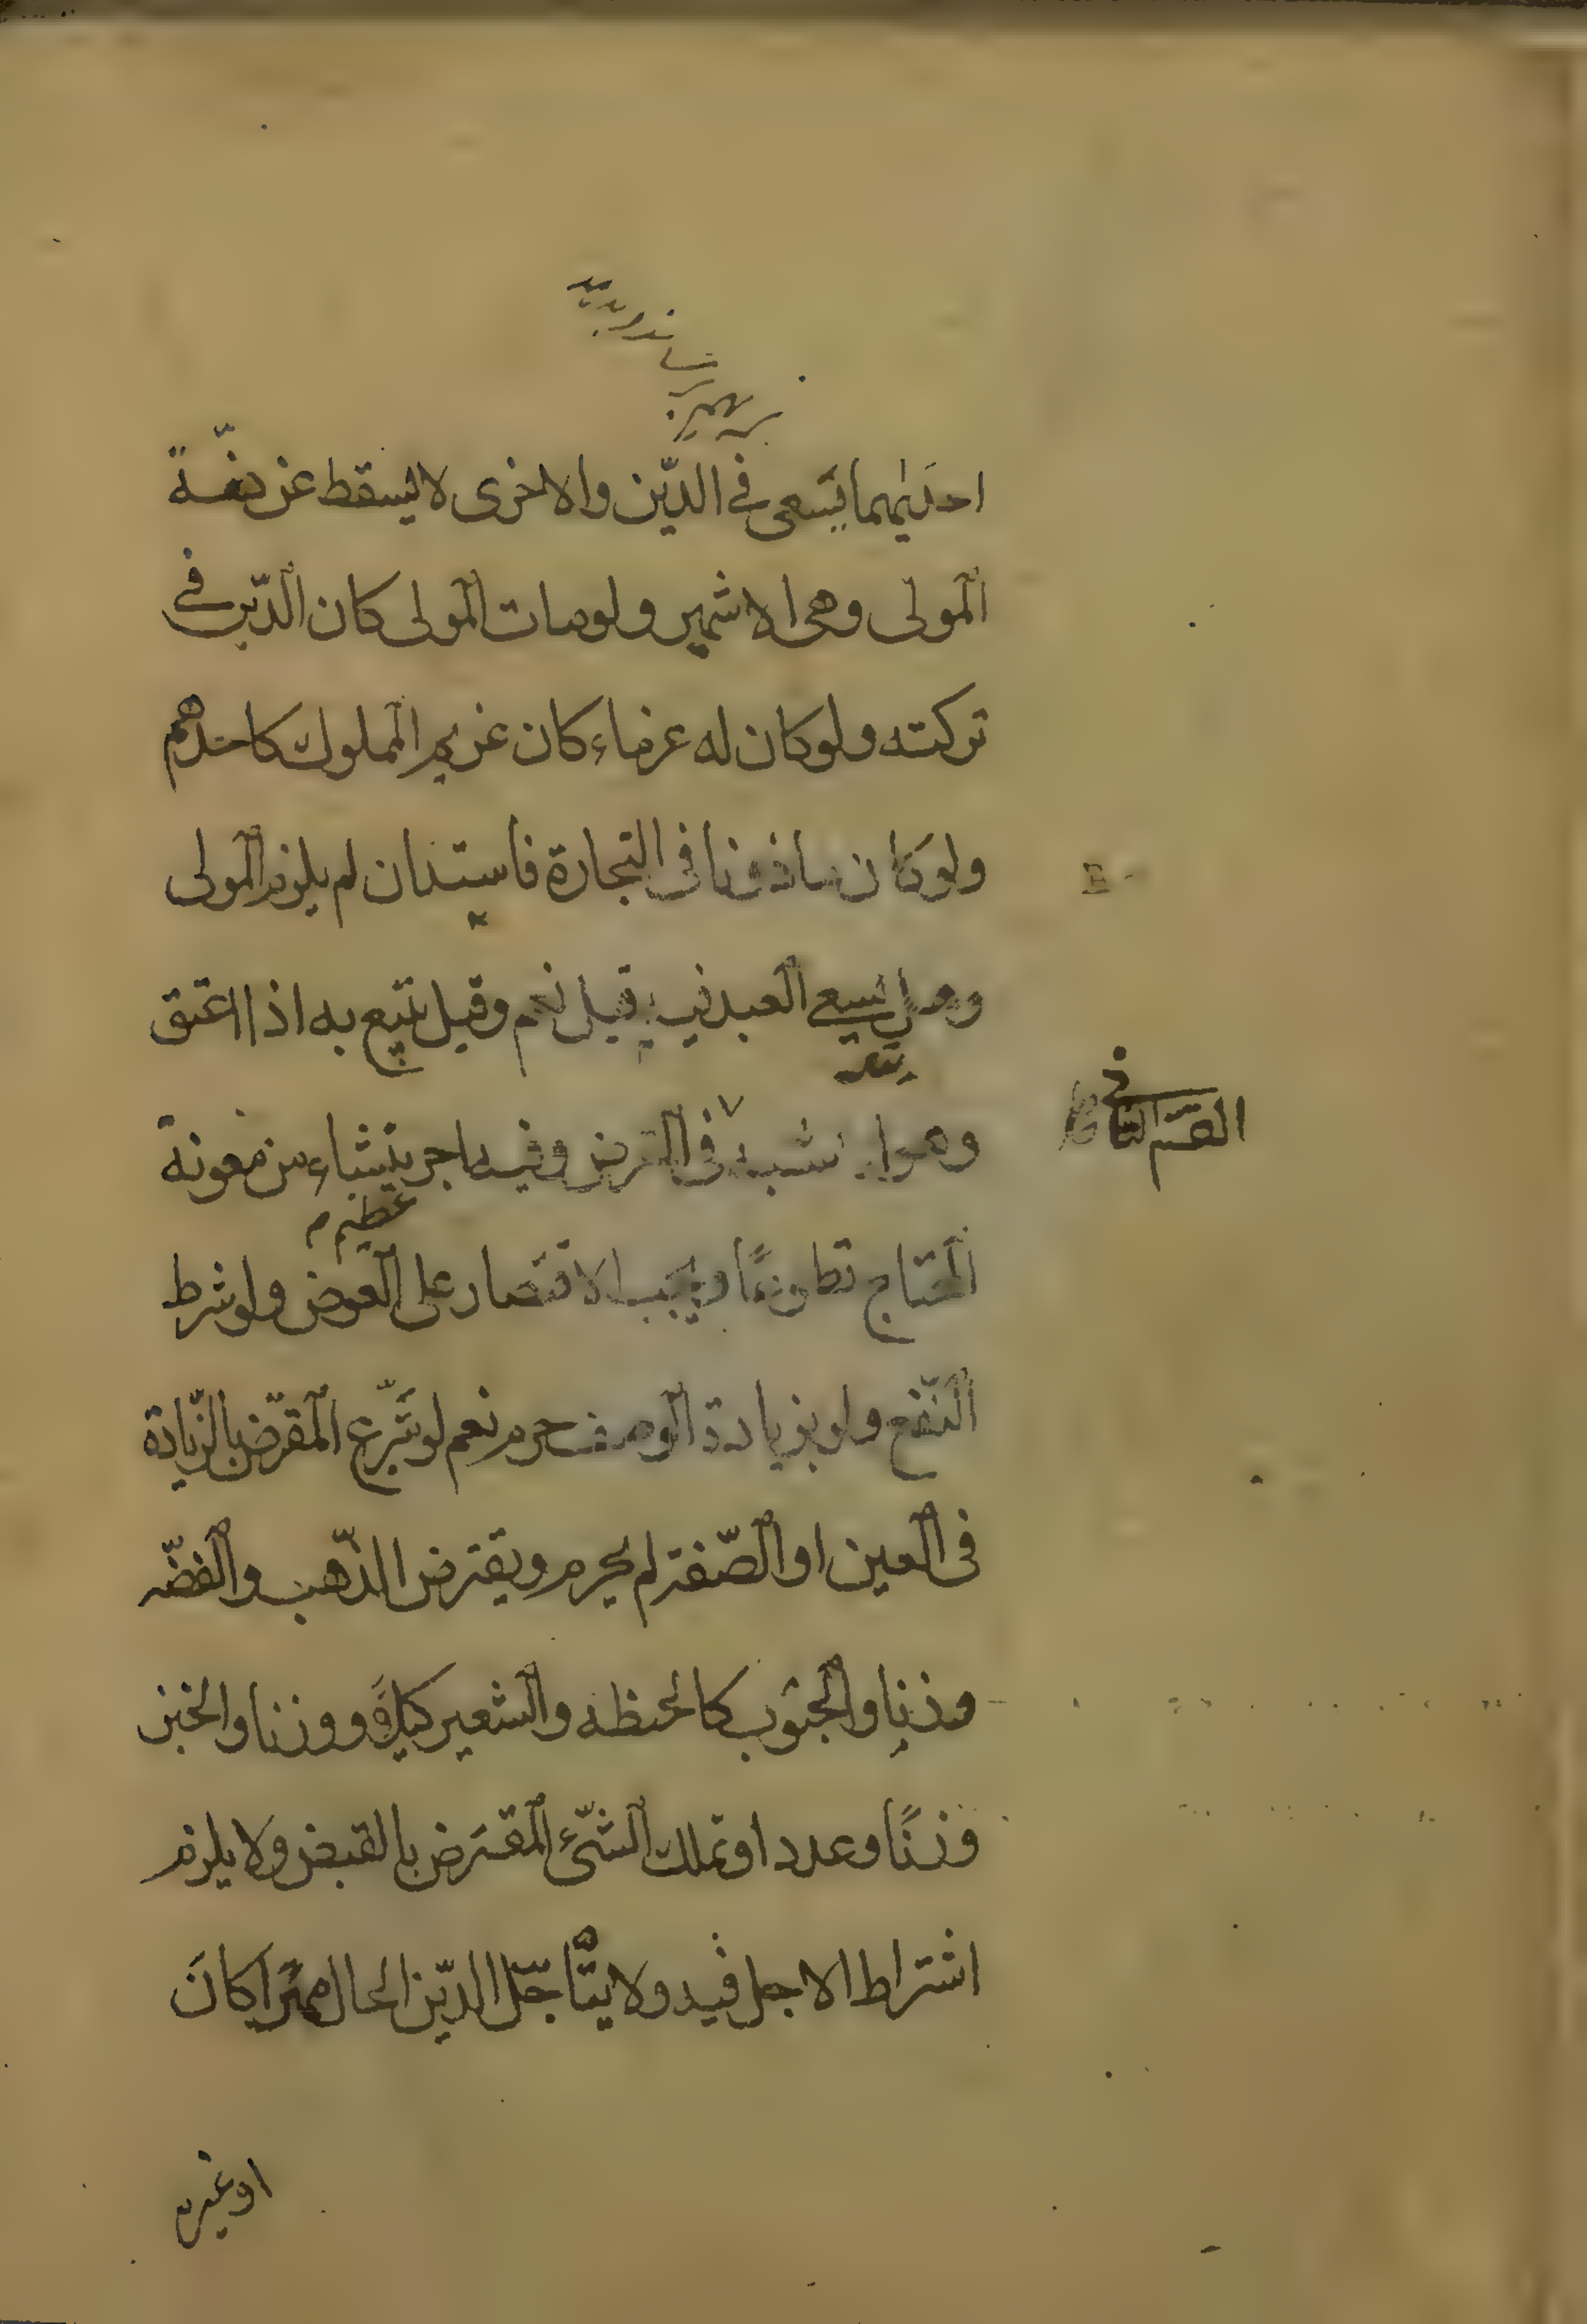 احدیهما یتسعی فی الدّین والاخری لا یسقط عن ذمّة
المولی وهی الاشهر ولو مات المولی کان الدّین فی
ترکته ولو کان له غرماء کان غریم المملوک کاحدهم
ولو کان ماذونا فی التجارة فاستدان لم یلزم المولی
وهل یسعی العبد فیه قیل نعم وقیل یتبع به اذا اعتق
القسم الثانی
فی القرض وفیه اجر ینشاء من معونة
عظیم
المحتاج تطوعًا ویجب الاقتصار علی العوض ولو شرط
النّفع ولو بزیادة الوصف حرم نعم لو تبرّع المقترض بالزّیادة
فی العین او الصّفة لم یحرم ویقترض الذّهب والفضّه
وزنا والحبوب کالحنطه والشعیر کیلاً ووزنا والخبز
وزنًا وعددا وتملک الشّیئ المقترض بالقبض ولا یلزم
اشتراط الاجل فیه ولا یتأجّل الدّین الحال مهرًا کان
او غیره